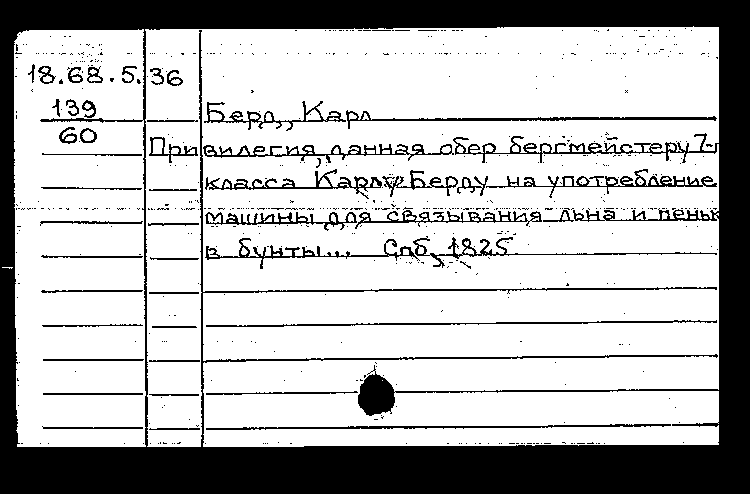 18.68.5.36
139
60
Берд, Карл
Привилегия, данная обер бергмейстеру 7-
класса Карлу Берду на употребление
машины для связывания льна и пеньк
в бунты... Спб, 1825